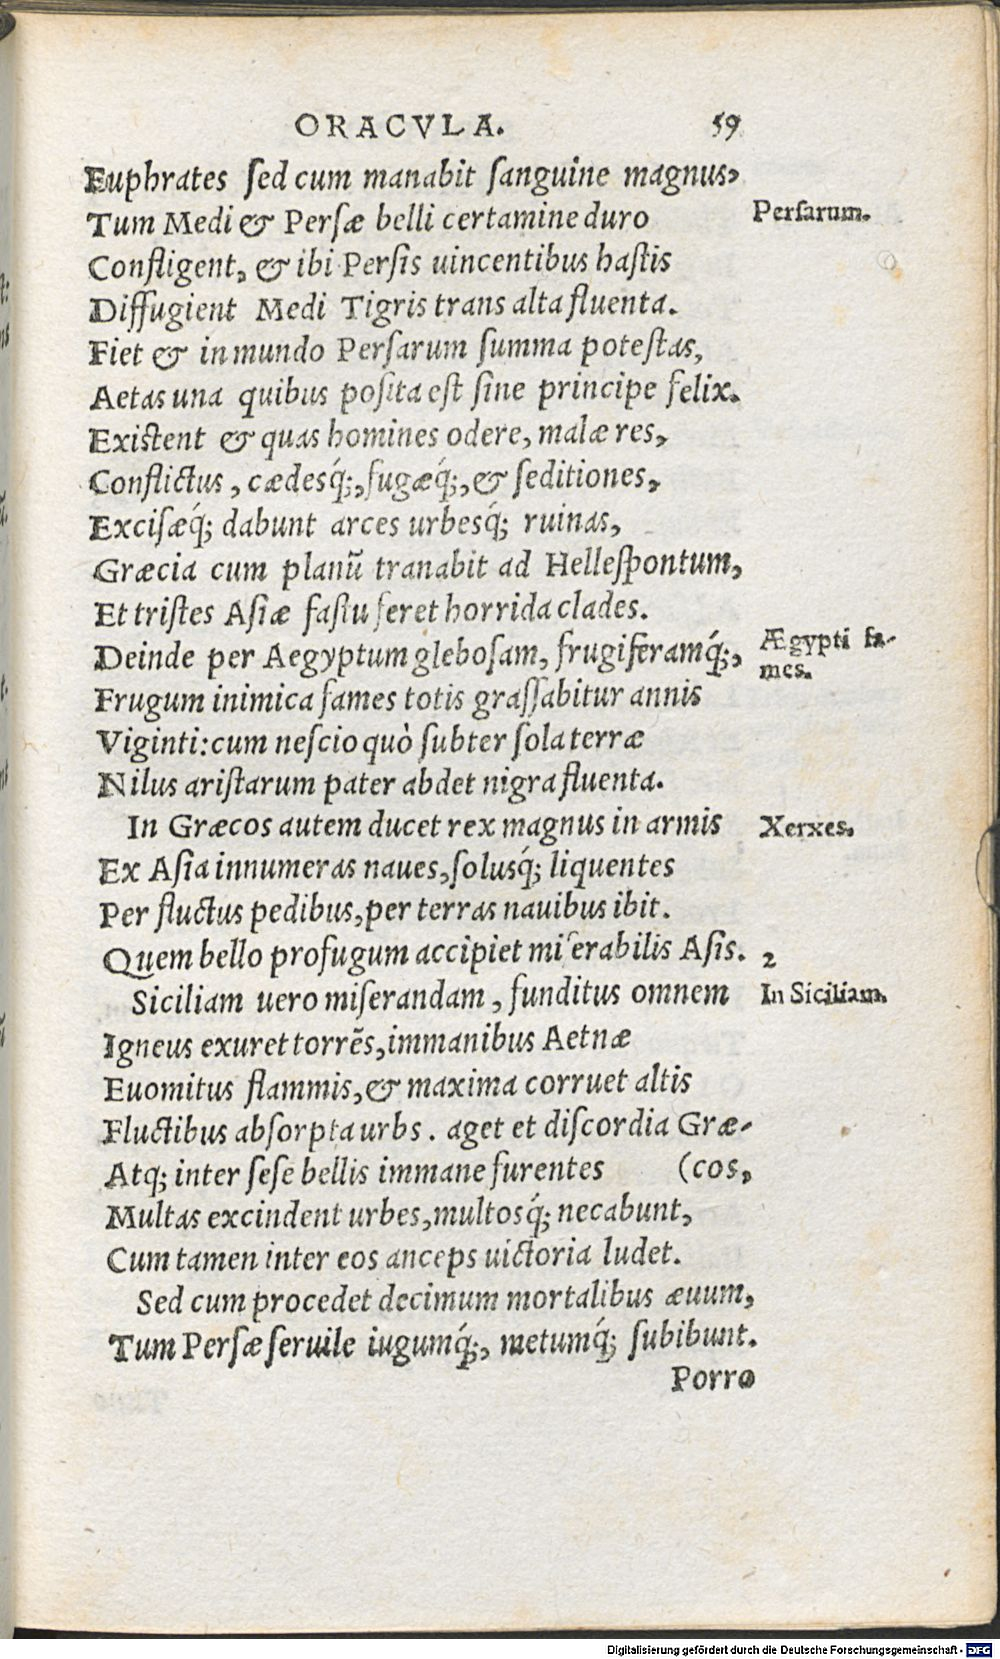 ORACVLA. 59
Euphrates sed cum manabit sanguine magnus,
Tum Medi & Persæ belli certamine duro
Persarum.
Confligent, & ibi Persis uincentibus hastis
Diffugient Medi Tigris trans alta fluenta.
Fiet & in mundo Persarum summa potestas,
Aetas una quibus posita est sine principe felix.
Existent & quas homines odere, malæ res,
Conflictus, cædesq́;, fugæq́;, & seditiones,
Excisæq́; dabunt arces urbesq́; ruinas,
Græcia cum planũ tranabit ad Hellespontum,
Et tristes Asiæ fastu feret horrida clades.
Deinde per Aegyptum glebosam, frugiferamq́;,
Ægypti fa-
mes.
Frugum inimica fames totis grassabitur annis
Viginti: cum nescio quò subter sola terræ
Nilus aristarum pater abdet nigra fluenta.
In Græcos autem ducet rex magnus in armis
Xerxes.
Ex Asia innumeras naues, solusq́; liquentes
Per fluctus pedibus, per terras nauibus ibit.
Quem bello profugum accipiet miserabilis Asis.
2
Siciliam uero miserandam, funditus omnem
In Siciliam.
Igneus exuret torrẽs, immanibus Aetnæ
Euomitus flammis, & maxima corruet altis
Fluctibus absorpta urbs. aget et discordia Græ-
Atq; inter sese bellis immane furentes (cos,
Multas excindent urbes, multosq́; necabunt,
Cum tamen inter eos anceps uictoria ludet.
Sed cum procedet decimum mortalibus æuum,
Tum Persæ seruile iugumq́;, metumq́; subibunt.
Porro
Digitalisierung gefördert durch die Deutsche Forschungsgemeinschaft - DFG